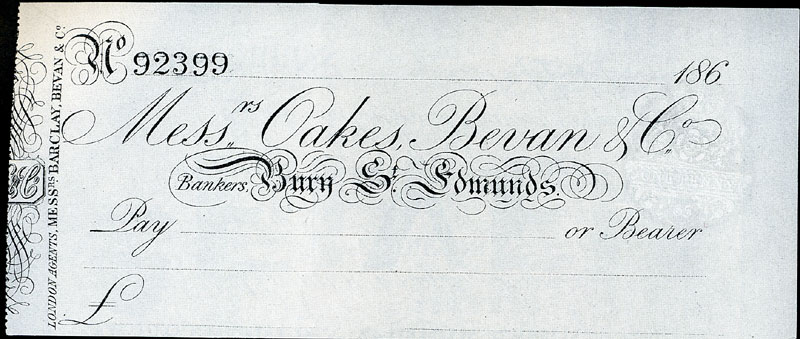 No 92399 186
Messrs Oakes, Bevan & Co.
Bankers, Bury St. Edmunds.
Pay or Bearer
£
LONDON AGENTS, MESSRS BARCLAY, BEVAN & Co.